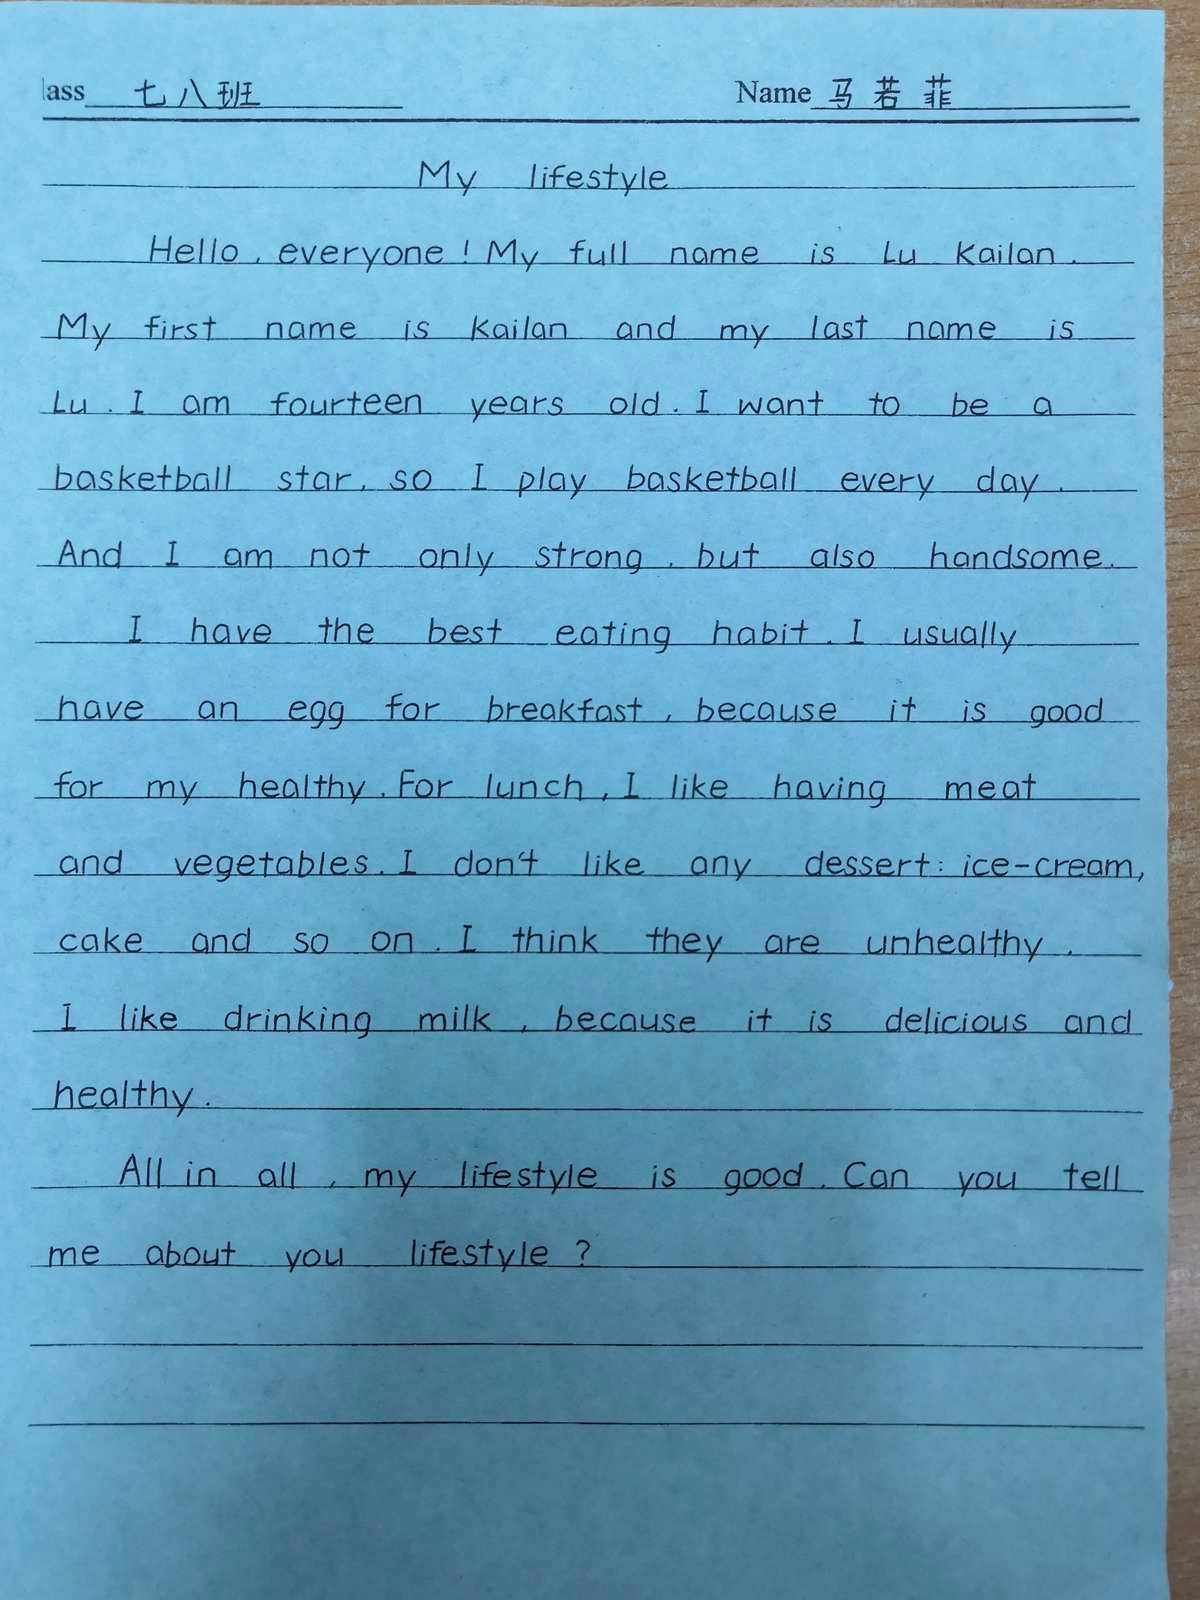 lass 七八班 Name 马若菲
My lifestyle
Hello, everyone! My full name is Lu Kailan.
My first name is Kailan and my last name is
Lu. I am fourteen years old. I want to be a
basketball star, so I play basketball every day.
And I am not only strong, but also handsome.
I have the best eating habit. I usually
have an egg for breakfast, because it is good
for my healthy. For lunch, I like having meat
and vegetables. I don't like any dessert: ice-cream,
cake and so on. I think they are unhealthy.
I like drinking milk, because it is delicious and
healthy.
All in all, my lifestyle is good. Can you tell
me about you lifestyle?